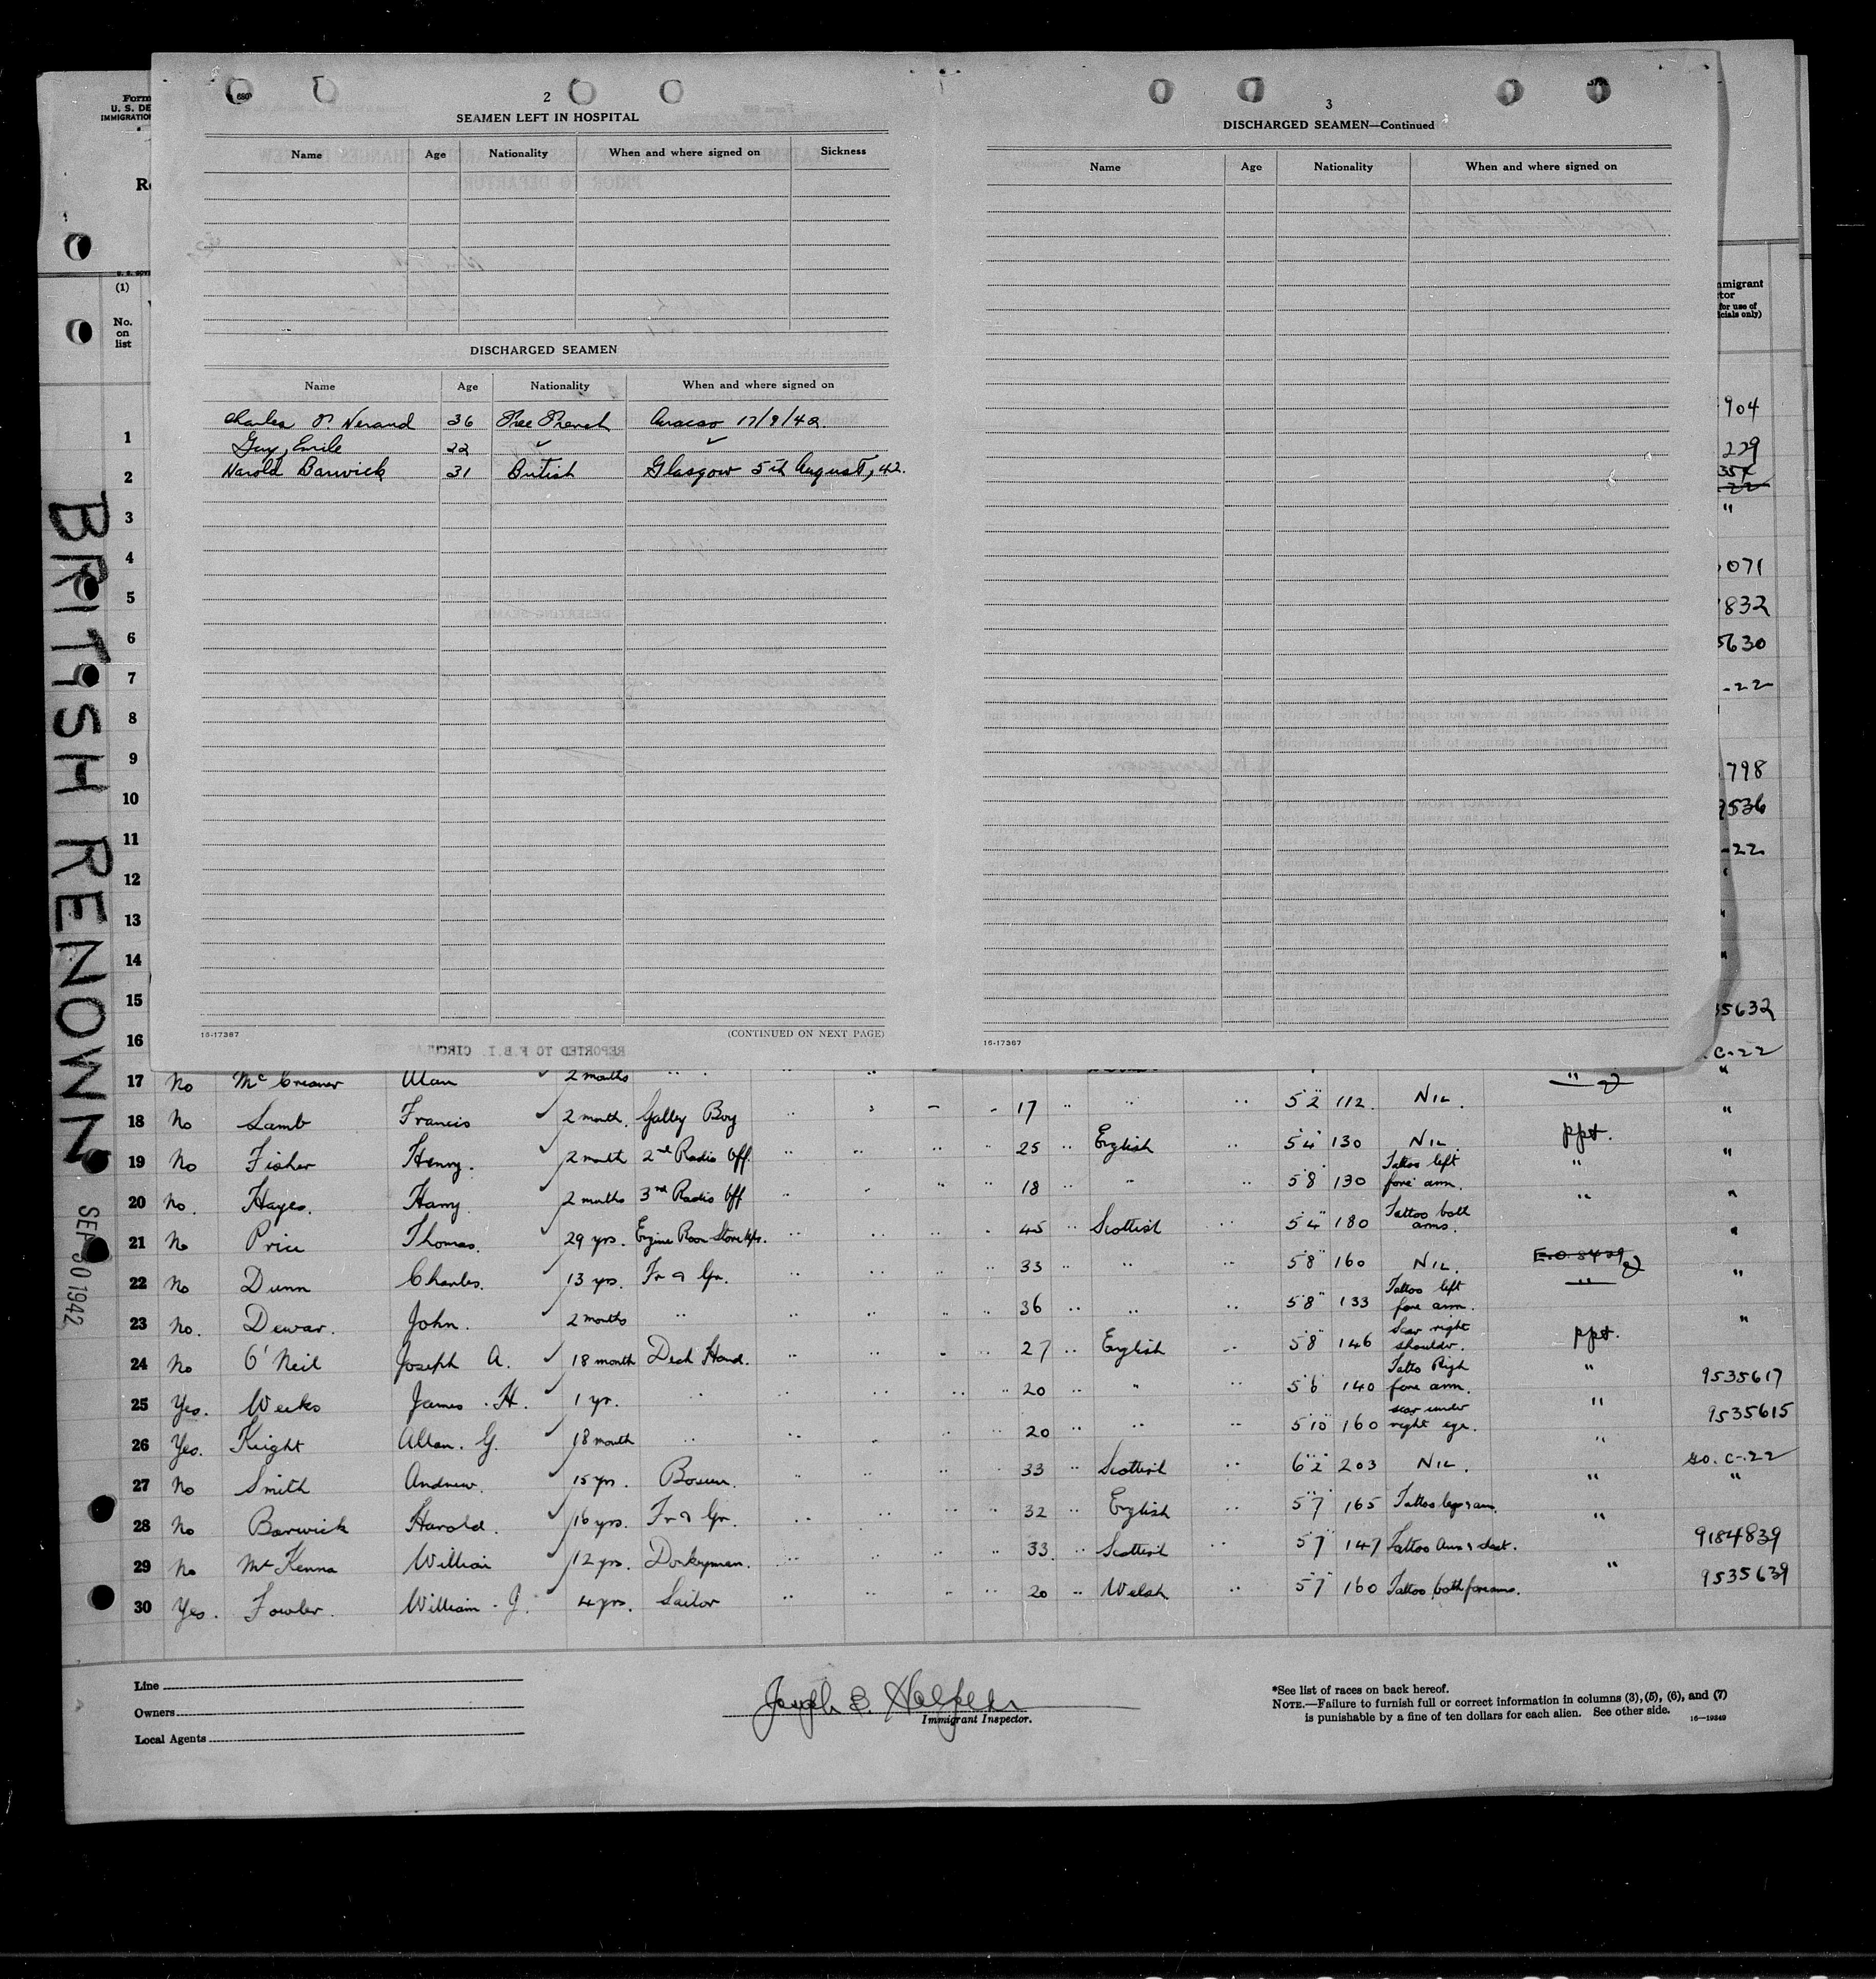 2
SEAMEN LEFT IN HOSPITAL
Name Age Nationality When and where signed on Sickness
DISCHARGED SEAMEN
Name Age Nationality When and where signed on
Charles Nerand 36 Free French Curacao 17/9/42.
Guy, Emile 22
Harold Barwick 31 British Glasgow 5th August, 42.
16-17387 (CONTINUED ON NEXT PAGE)
3
DISCHARGED SEAMEN—Continued
Name Age Nationality When and where signed on
16-17387
Form
U. S. DE
IMMIGRATION
(1)
No.
on
list
BRITISH RENOWN
SEP 30 1942
mmigrant
tor
for use of
icials only)
1 904
2 229
357
22
3 "
4 071
5 832
6 5630
7 -22
8
9 798
10 9536
11 -22
12
13 "
14 "
15 35632
16 C-22
REPORTED TO F.B.I. CIRCULAR
17 No Alan 2 months " "
18 No Lamb Francis 2 month. Galley Boy 17 5'2" 112. NIL. "
19 No Fisher Henry. 2 month 2nd Radio Off. 25 English 5'4" 130 NIL. ppt. "
20 No. Hayes. Harry 2 months 3rd Radio Off 18 " 5'8" 130 Tattoo left fore arm. " "
21 No Price Thomas. 29 yrs. Engine Room Storekpr. 45 Scottish 5'4" 180 Tattoo both arms. " "
22 No Dunn Charles. 13 yrs. Fr & Gr. 33 " 5'8" 160 NIL. E.O. 8429 "
23 No. Dewar. John. 2 months " 36 " 5'8" 133 Tattoo left fore arm. " "
24 No O'Neil Joseph A. 18 month Deck Hand. 27 English 5'8" 146 Scar right shoulder. ppt.
25 Yes. Weeks James . H. 1 yr. " 20 " 5'6" 140 Tatto Righ fore arm. " 9535617
26 Yes. Knight Allan. G. 18 month " 20 " 5'10" 160 scar under right eye. " 9535615
27 No Smith Andrew. 15 yrs. Bosun. 33 Scottish 6'2" 203 NIL. " C-22
28 No Barwick Harold. 16 yrs. Fr & Gr. 32 English 5'7" 165 Tattoo legs & arm. " "
29 No McKenna William 12 yrs. Donkeyman. 33. Scottish 5'7" 147 Tattoo Arms & chest. " 9184839
30 Yes. Fowler. William . J. 4 yrs. Sailor 20 Welsh 5'7" 160 Tattoo both forearms. " 9535639
Line
Owners
Local Agents
Immigrant Inspector.
*See list of races on back hereof.
NOTE.—Failure to furnish full or correct information in columns (3), (5), (6), and (7)
is punishable by a fine of ten dollars for each alien. See other side. 16—19349